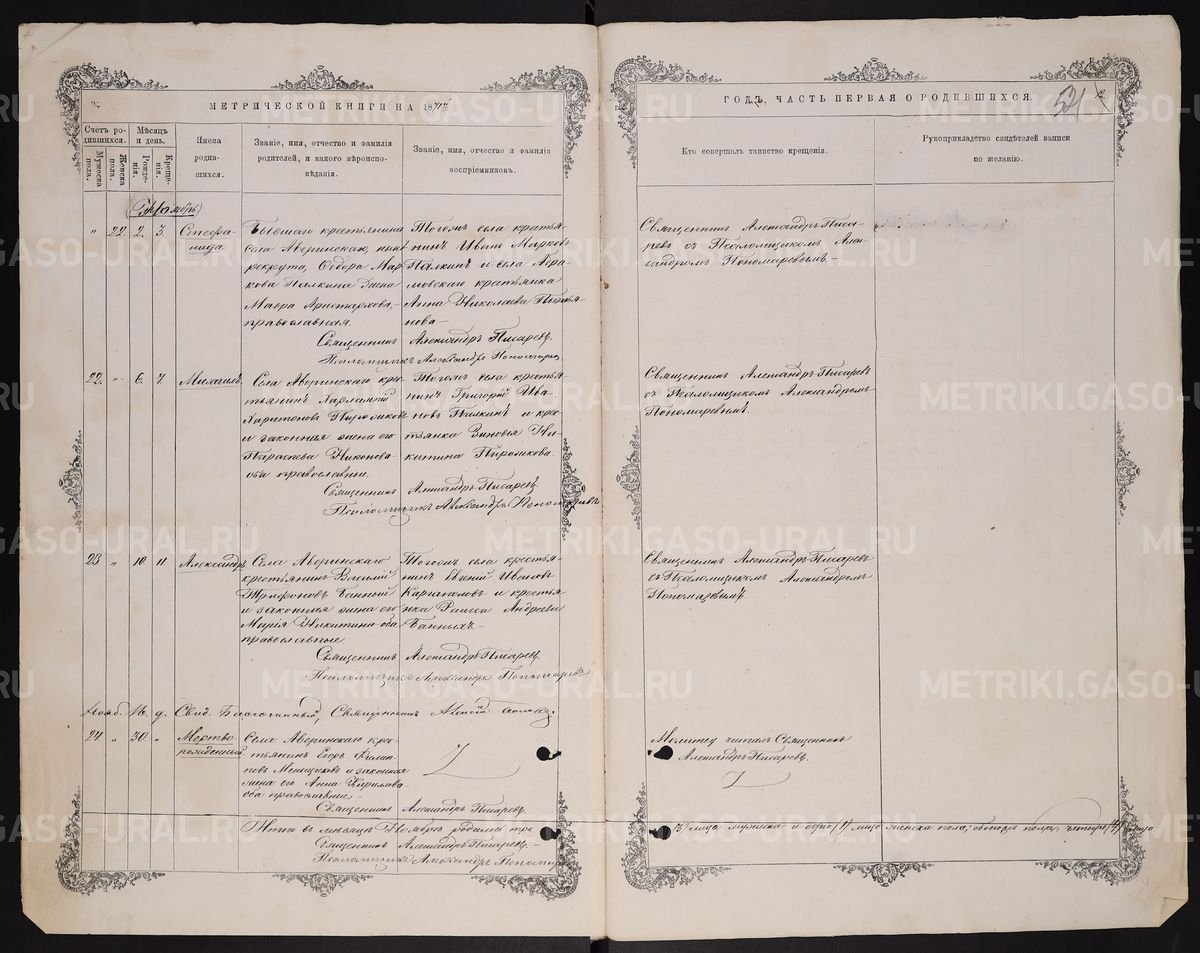 МЕТРИЧЕСКОЙ КНИГИ НА 18
ГОДЪ, ЧАСТЬ ПЕРВАЯ О РОДИВШИХСЯ.
521
Счетъ родившихся.
Мужеска пола.
Женска пола.
Мѣсяцъ и день.
Рожденія.
Крещенія.
Имена родившихся.
Званіе, имя, отчество и фамилія родителей, и какого вѣроисповѣданія.
Званіе, имя, отчество и фамилія воспріемниковъ.
Кто совершалъ таинство крещенія.
Рукоприкладство свидѣтелей записи по желанію.
Ноябрь
" 22. 2. 3. Стефанида
Бывшаго крестьянина
села Аверинскаго, ныне
рекрута, Ѳедора Маркова Палкина жена
Мавра Аристархова,
православная.
Тогожъ села крестьянинъ Иванъ Марковъ
Палкинъ и села
крестьянка
Анна Николаева
Священникъ Александръ Писаревъ.
Псаломщикъ Александръ Пономаревъ
Священникъ Александръ Писаревъ съ Псаломщикомъ Александромъ Пономаревымъ.—
22. " 6. 7. Михаилъ.
Села Аверинскаго крестьянинъ Харлампій
Харитоновъ
и законная жена его
Параскева Никонова
оба православные.
Тогожъ села крестьянинъ Григорій Ивановъ Палкинъ и крестьянка Зиновія Никитина
Священникъ Александръ Писаревъ.
Псаломщикъ Александръ Пономаревъ
Священникъ Александръ Писаревъ
съ Псаломщикомъ Александромъ
Пономаревымъ.
23 " 10 11 Александръ
Села Аверинскаго
крестьянинъ Василій
Трифоновъ Банныхъ
и законная жена его
Марія Никитина оба
православные
Тогожъ села крестьянинъ Евгеній Ивановъ
Каргаполовъ и крестьянка Раиса Андреева
Банныхъ.—
Священникъ Александръ Писаревъ.
Псаломщикъ Александръ Пономаревъ
Священникъ Александръ Писаревъ
съ Псаломщикомъ Александромъ
Пономаревымъ.
Нояб. 16. д. Свид. Благочинный, Священникъ Алексій
24 " 30. " Мертворожденный
Села Аверинскаго крестьянинъ Егоръ Филиповъ Меньщиковъ и законная
жена его Анна Кирилова
оба православные.
Священникъ Александръ Писаревъ.
Молитву читалъ Священникъ
Александръ Писаревъ.
Итого въ мѣсяцѣ Ноябрѣ родилось три (3) лица мужеска и одно (1) лицо женска пола; обоего пола четыре (4) лица
Священникъ Александръ Писаревъ.—
Псаломщикъ Александръ Пономаревъ
METRIKI.GASO-URAL.RU